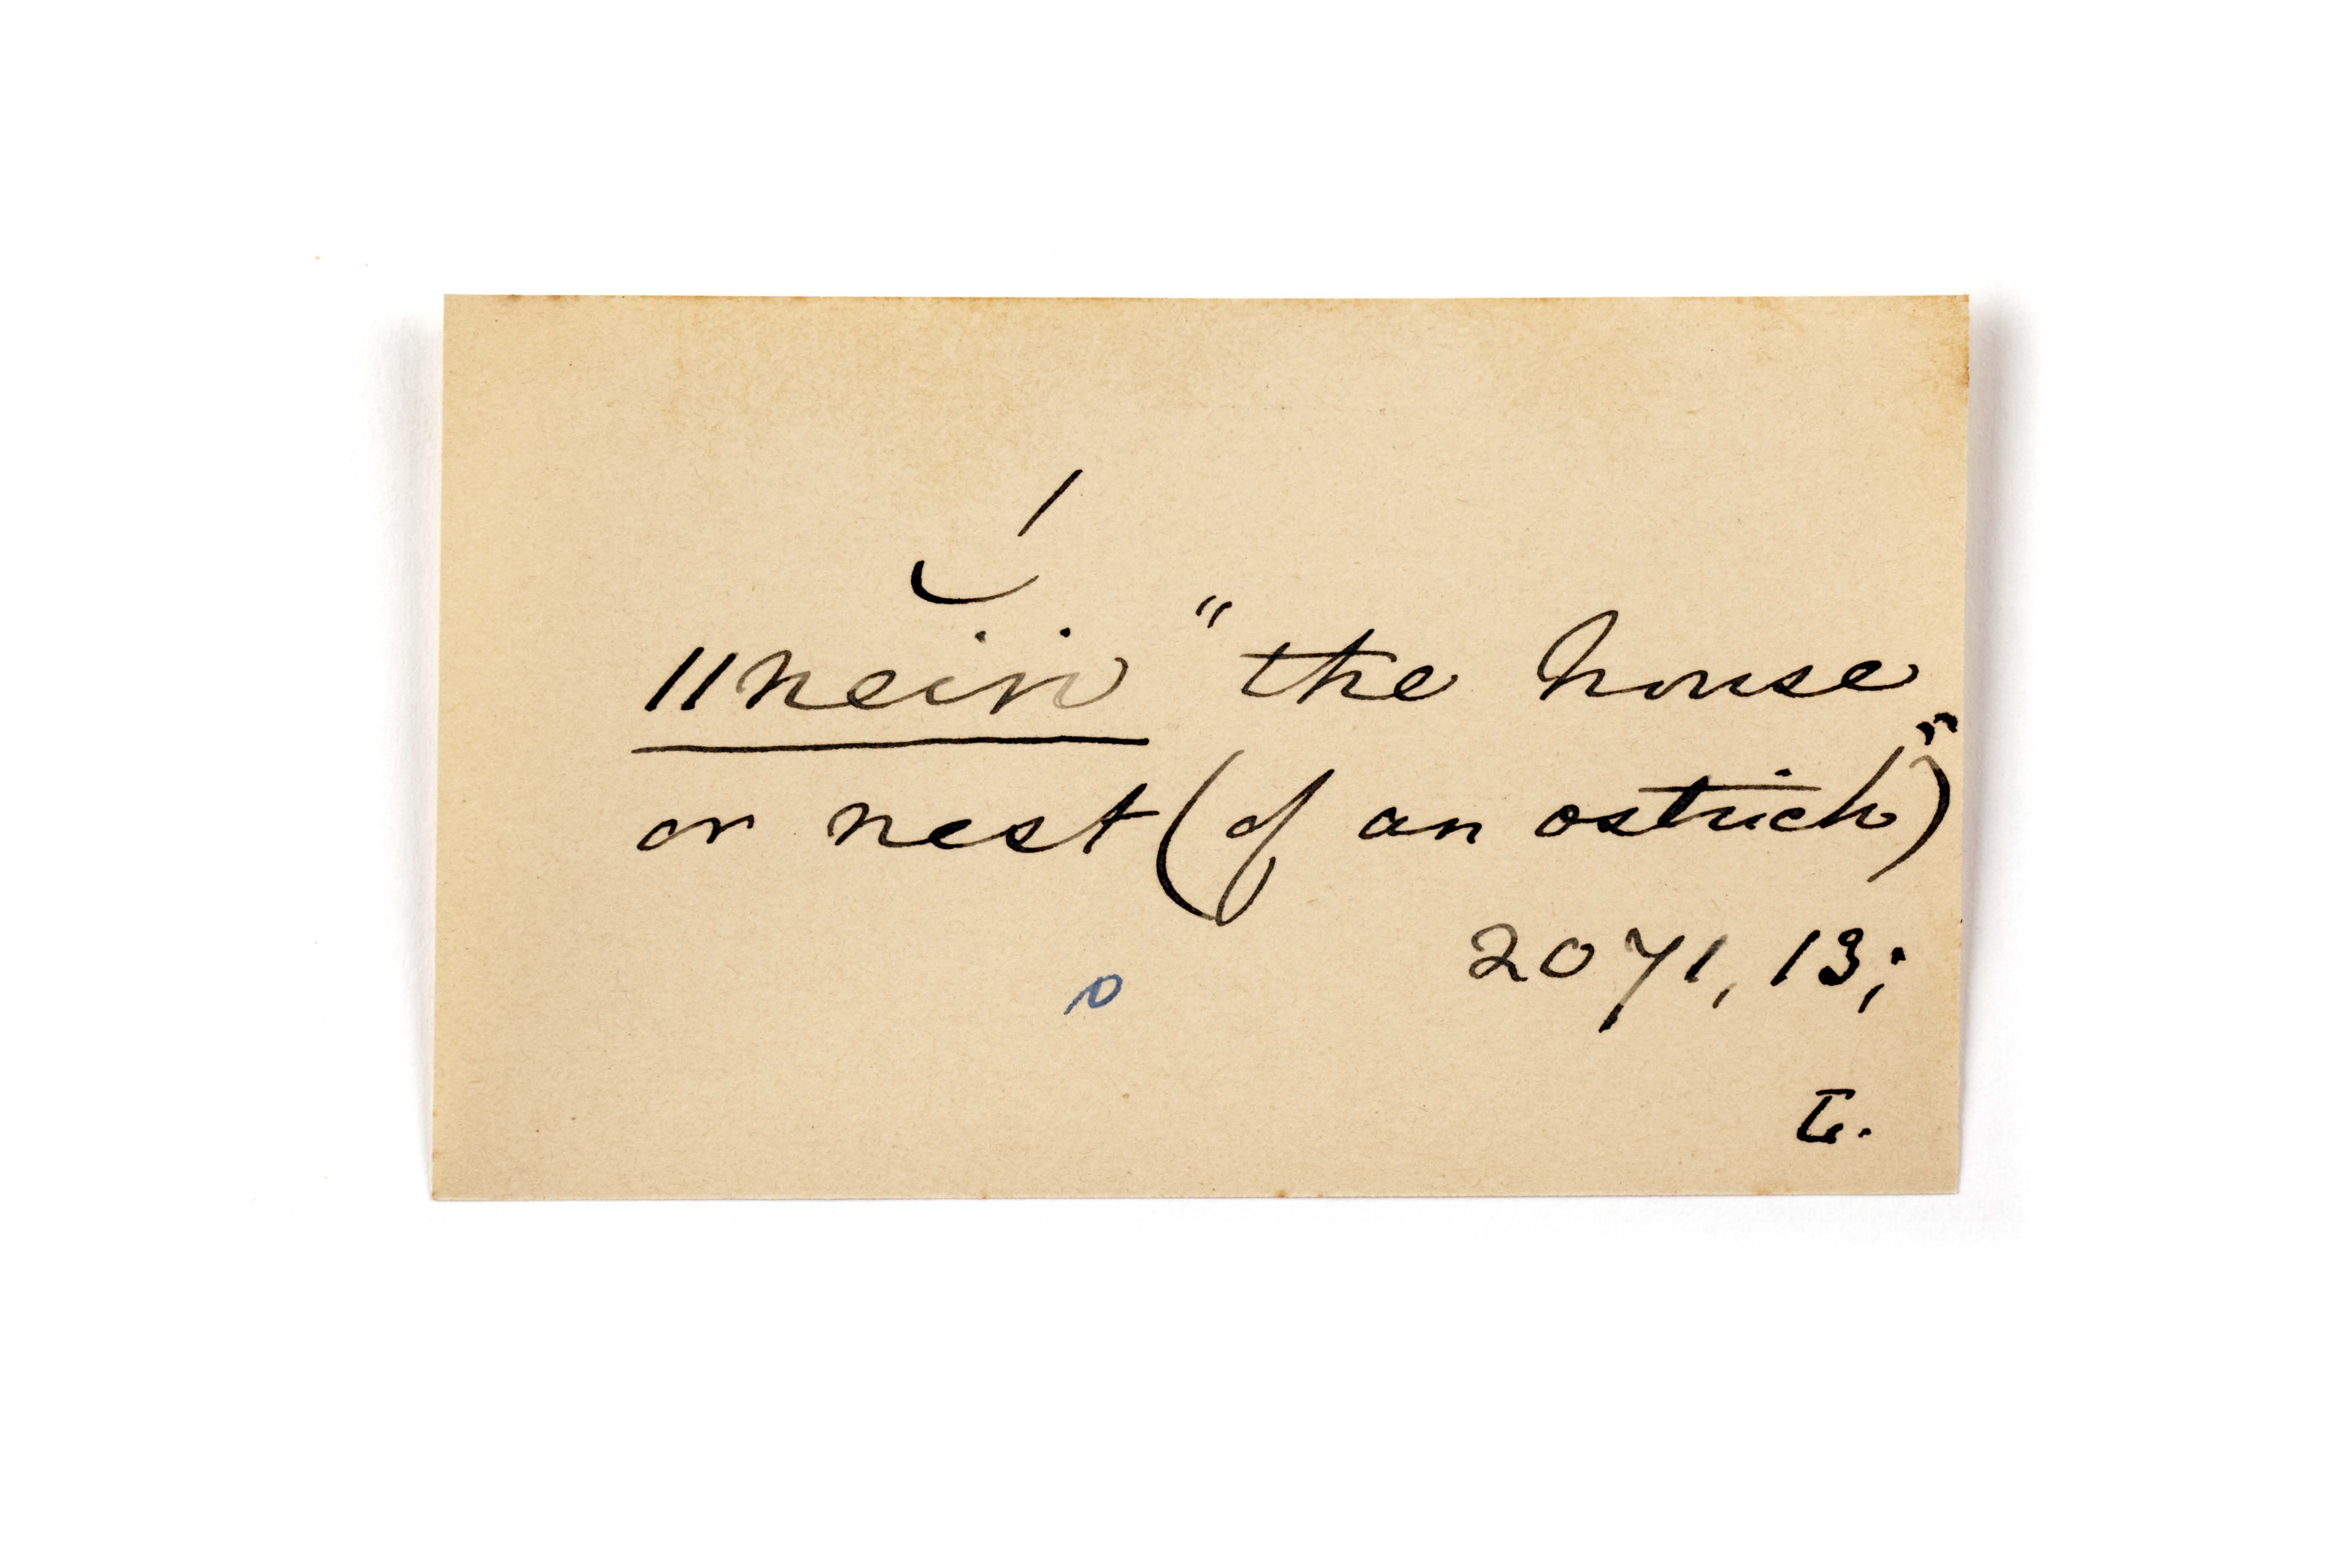 ǁnĕíń "the house
or nest (of an ostrich)"
2071, 13;
L.